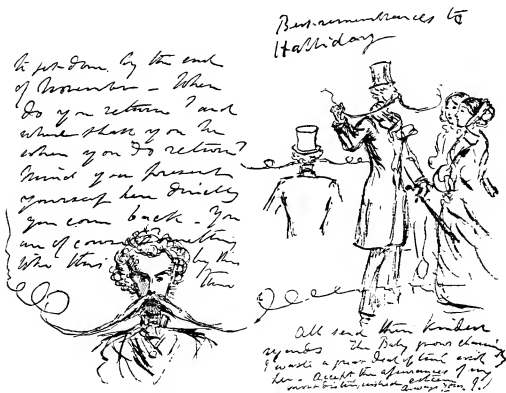 to get done by the end
of November – When
do you return? and
where shall you be
when you do return?
Mind you present
yourself here directly
you come back – You
are of course something
like this by this
time
Best remembrances to
Halliday
All send their kindest
regards The Baby grows charming
I waste a great deal of time with
her – Accept the assurances of my
most distinguished esteem
Always Yours